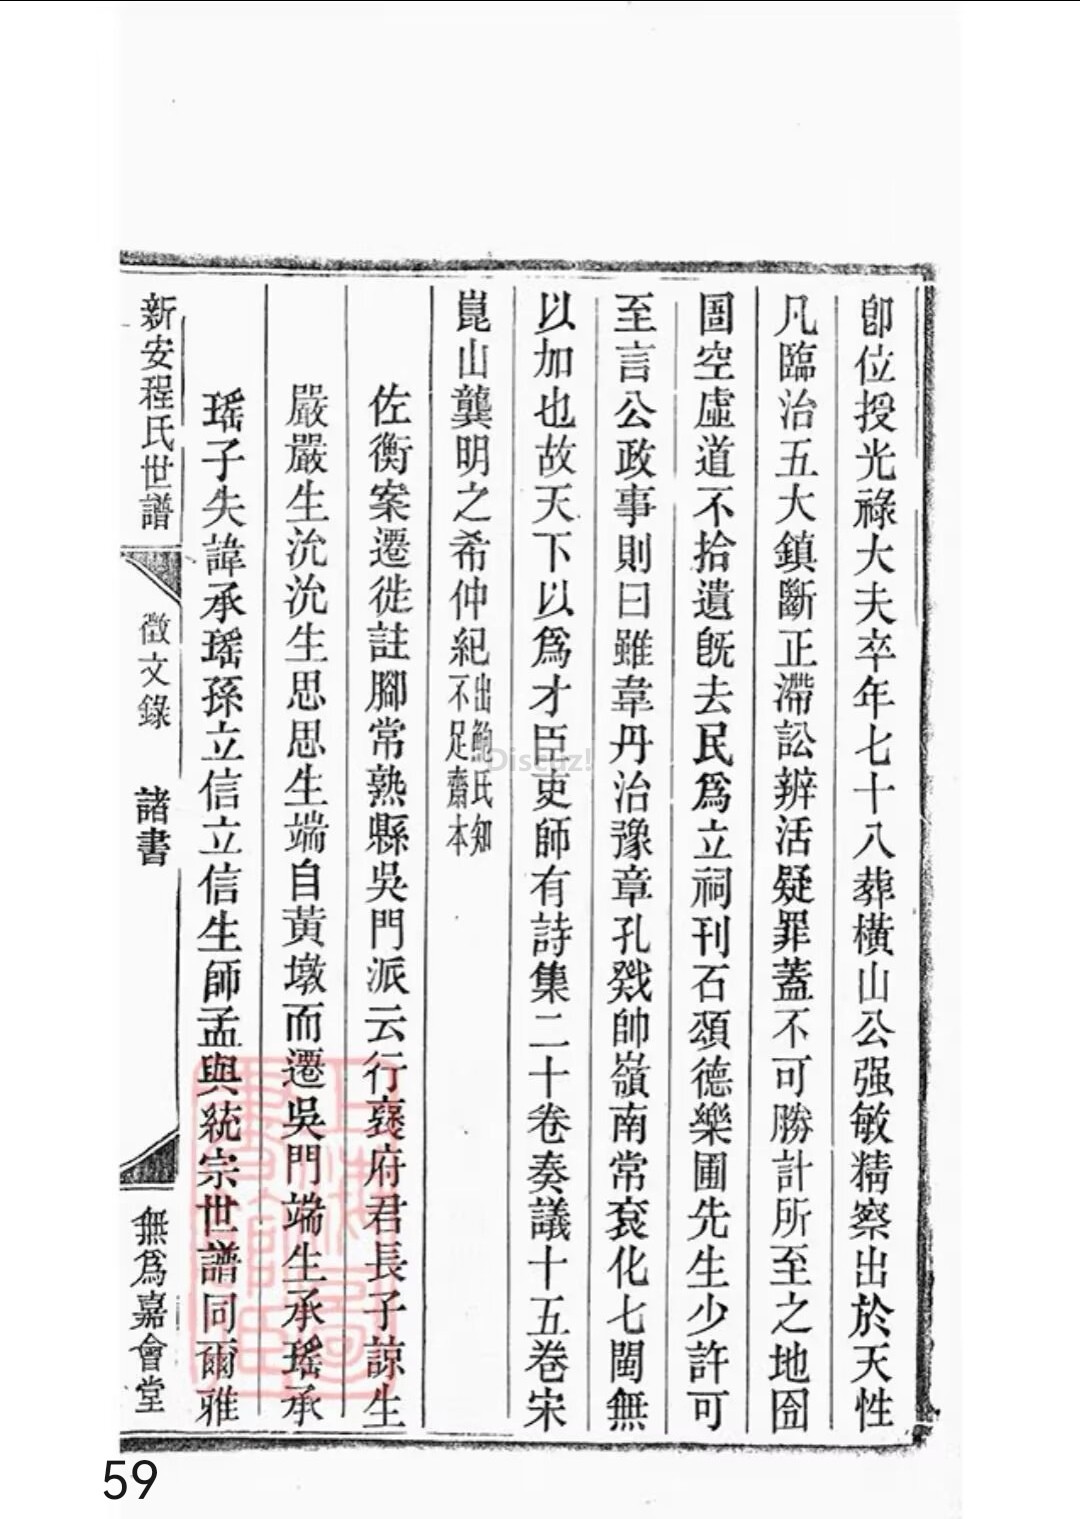 卽位授光祿大夫卒年七十八葬橫山公强敏精察出於天性
凡臨治五大鎮斷正滯訟辨活疑罪蓋不可勝計所至之地囹
圄空虛道不拾遺旣去民爲立祠刊石頌德樂圃先生少許可
至言公政事則曰雖韋丹治豫章孔戣帥嶺南常袞化七閩無
以加也故天下以爲才臣吏師有詩集二十卷奏議十五卷宋
崑山龔明之希仲紀出鮑氏知
不足齋本
佐衡案遷徙註腳常熟縣吳門派云行襃府君長子諒生
嚴嚴生沇沇生思思生端自黃墩而遷吳門端生承瑤承
瑤子失諱承瑤孫立信立信生師孟與統宗世譜同爾雅
新安程氏世譜
徵文錄
諸書
無爲嘉會堂
上海圖書館藏
Discuz!
59